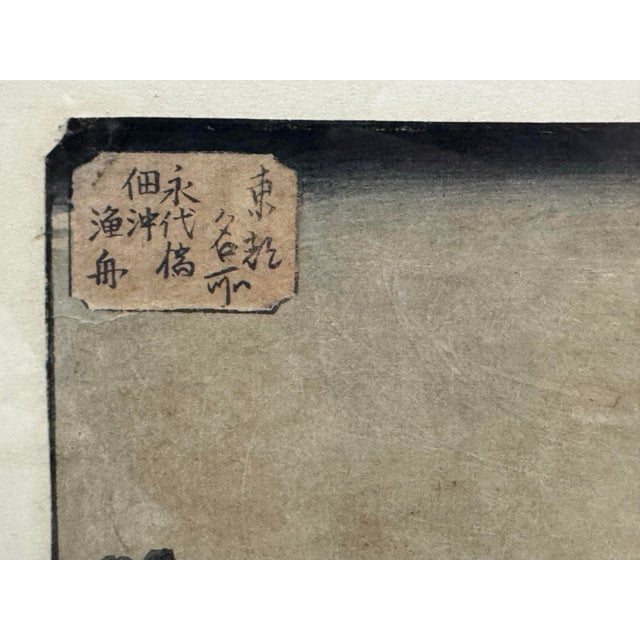 東都
名所
永代橋
佃沖
漁舟